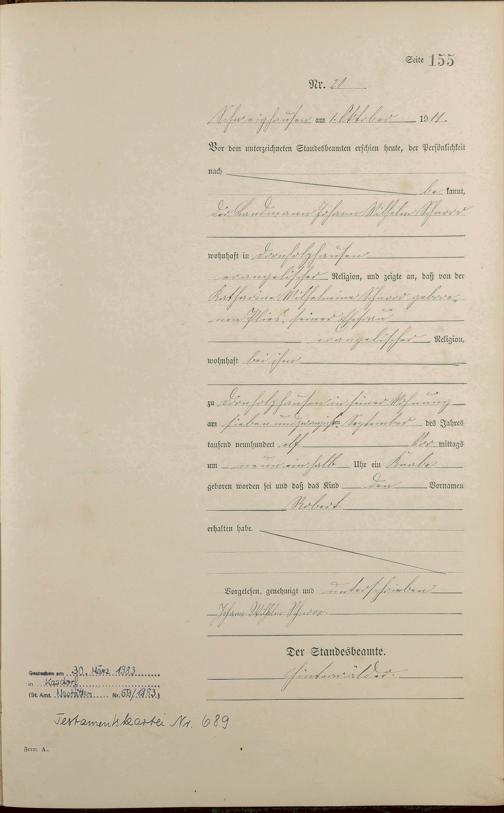 Seite 155
Nr. 21
Schweighausen am 1. Oktober 1911.
Vor dem unterzeichneten Standesbeamten erschien heute, der Persönlichkeit
nach
be kannt,
der Landmann Johann Wilhelm
wohnhaft in Dornholzhausen
evangelischer Religion, und zeigte an, daß von der
Katharine Wilhelmine gebore-
nen seiner Ehefrau
evangelischer Religion,
wohnhaft bei ihm
zu Dornholzhausen in seiner Wohnung
am sieben und zwanzigsten September des Jahres
tausend neunhundert elf Vor mittags
um neun ein halb Uhr ein Knabe
geboren worden sei und daß das Kind den Vornamen
Robert
erhalten habe.
Vorgelesen, genehmigt und unterschrieben
Johann Wilhelm
Der Standesbeamte.
Hinterwälder
Gestorben am 30. März 1983
in Kasdorf
(St. Amt Nastätten Nr. /1983)
Testamentskartei Nr. 689
Form A.